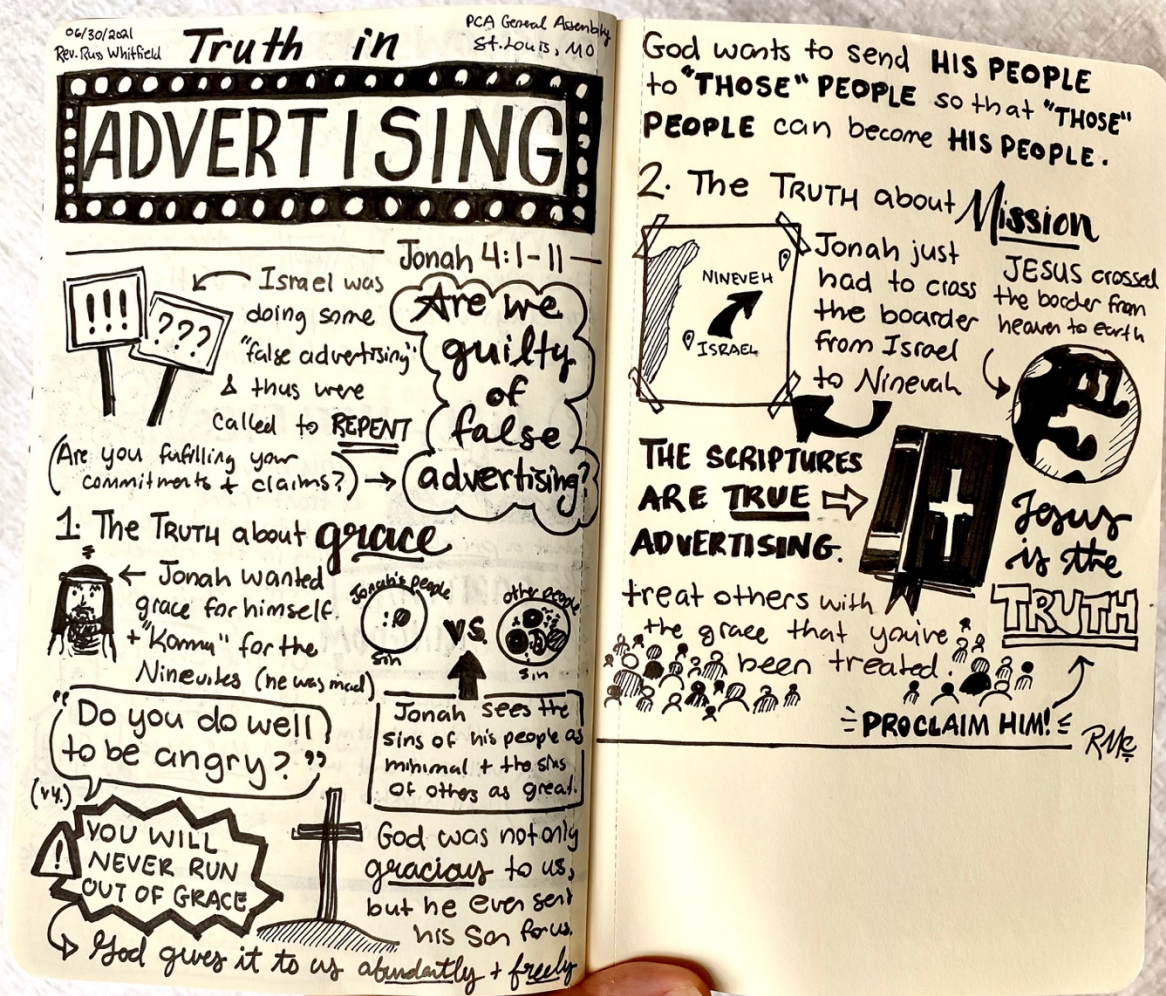 06/30/2021
Rev. Russ Whitfield
Truth in
PCA General Assembly
St. Louis, MO
ADVERTISING
Jonah 4:1-11
!!!
???
Israel was
doing some
"false advertising"
& thus were
called to REPENT
(Are you fulfilling your
commitments + claims?)
Are we
guilty
of
false
advertising?
1. The TRUTH about grace
Jonah wanted
grace for himself
+ "Karma" for the
Ninevites (he was mad)
Jonah's people
sin
VS.
other people
sin
Jonah sees the
sins of his people as
minimal + the sins
of others as great.
"Do you do well
to be angry?"
(v4.)
!
YOU WILL
NEVER RUN
OUT OF GRACE
God was not only
gracious to us,
but he even sent
his Son for us.
God gives it to us abundantly + freely
God wants to send HIS PEOPLE
to "THOSE" PEOPLE so that "THOSE"
PEOPLE can become HIS PEOPLE.
2. The TRUTH about Mission
NINEVEH
ISRAEL
Jonah just
had to cross
the boarder
from Israel
to Ninevah
JESUS crossed
the boarder from
heaven to earth
THE SCRIPTURES
ARE TRUE
ADVERTISING.
Jesus
is the
TRUTH
treat others with
the grace that you've
been treated.
PROCLAIM HIM!
RMc